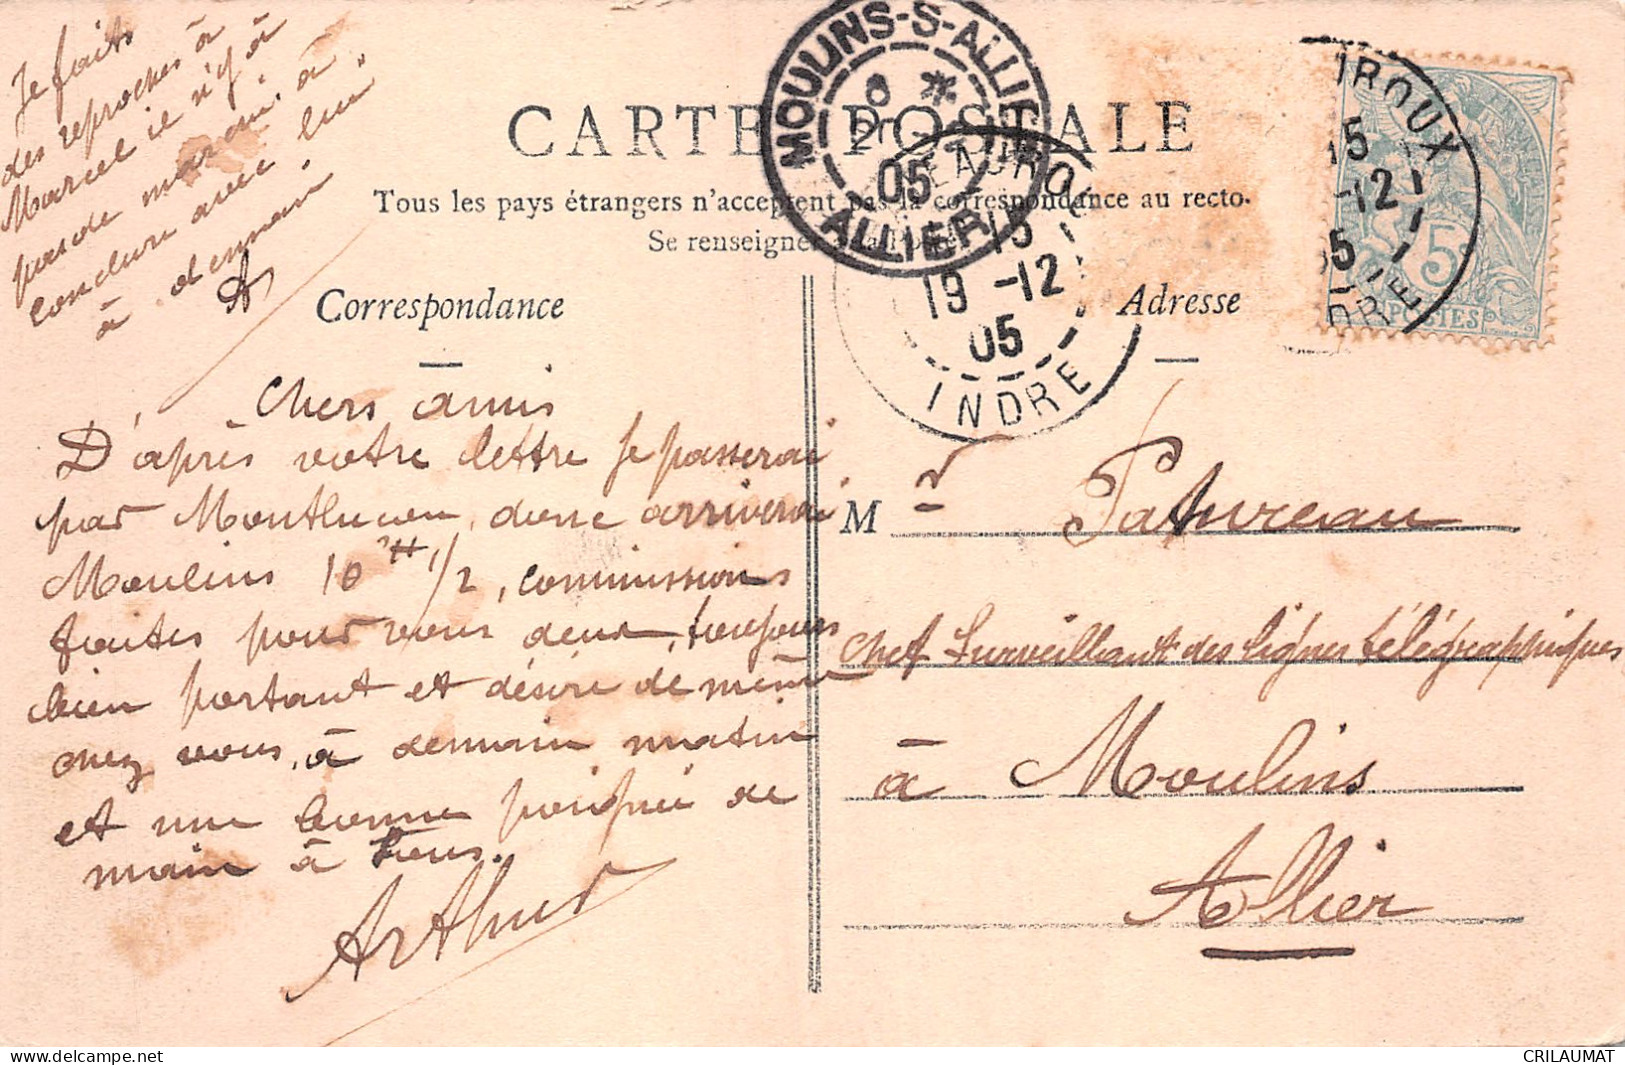 Je fais
des reproches à
Marcel il n'y à
pas de maroni, à
conclure avec lui
à demain.
A
MOULINS-S-ALLIER
ALLIER
05
CARTE POSTALE
Tous les pays étrangers n'acceptent pas la correspondance au recto.
Se renseigner à la Poste
Correspondance
Adresse
15
19 -12
05
INDRE
IROUX
15
-12
05
INDRE
5
POSTES
Chers amis
D'après votre lettre je passerai
par Montlucon, donc arriverai
Moulins 10 H 1/2, commissions
faites pour vous deux, toujours
bien portant et désire de même
chez vous, à demain matin
et une bonne poignée de
main à tous.
Arthur
M r Patureau
Chef Surveillant des lignes télégraphiques
à Moulins
Allier
CRILAUMAT
www.delcampe.net